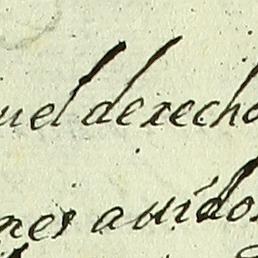 uel derecho
nes avido